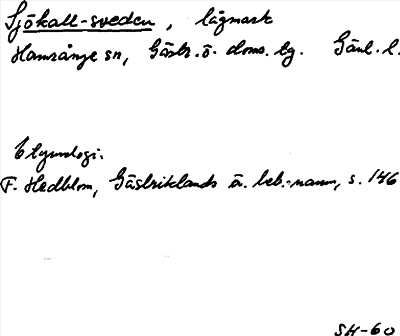 Sjökall-sveden, lågmark
Hamrånge sn, Gästr. ö. doms. bg. Gävl. l.
Etymologi:
F. Hedblom, Gästriklands ä. beb.-namn, s. 146
SH-60